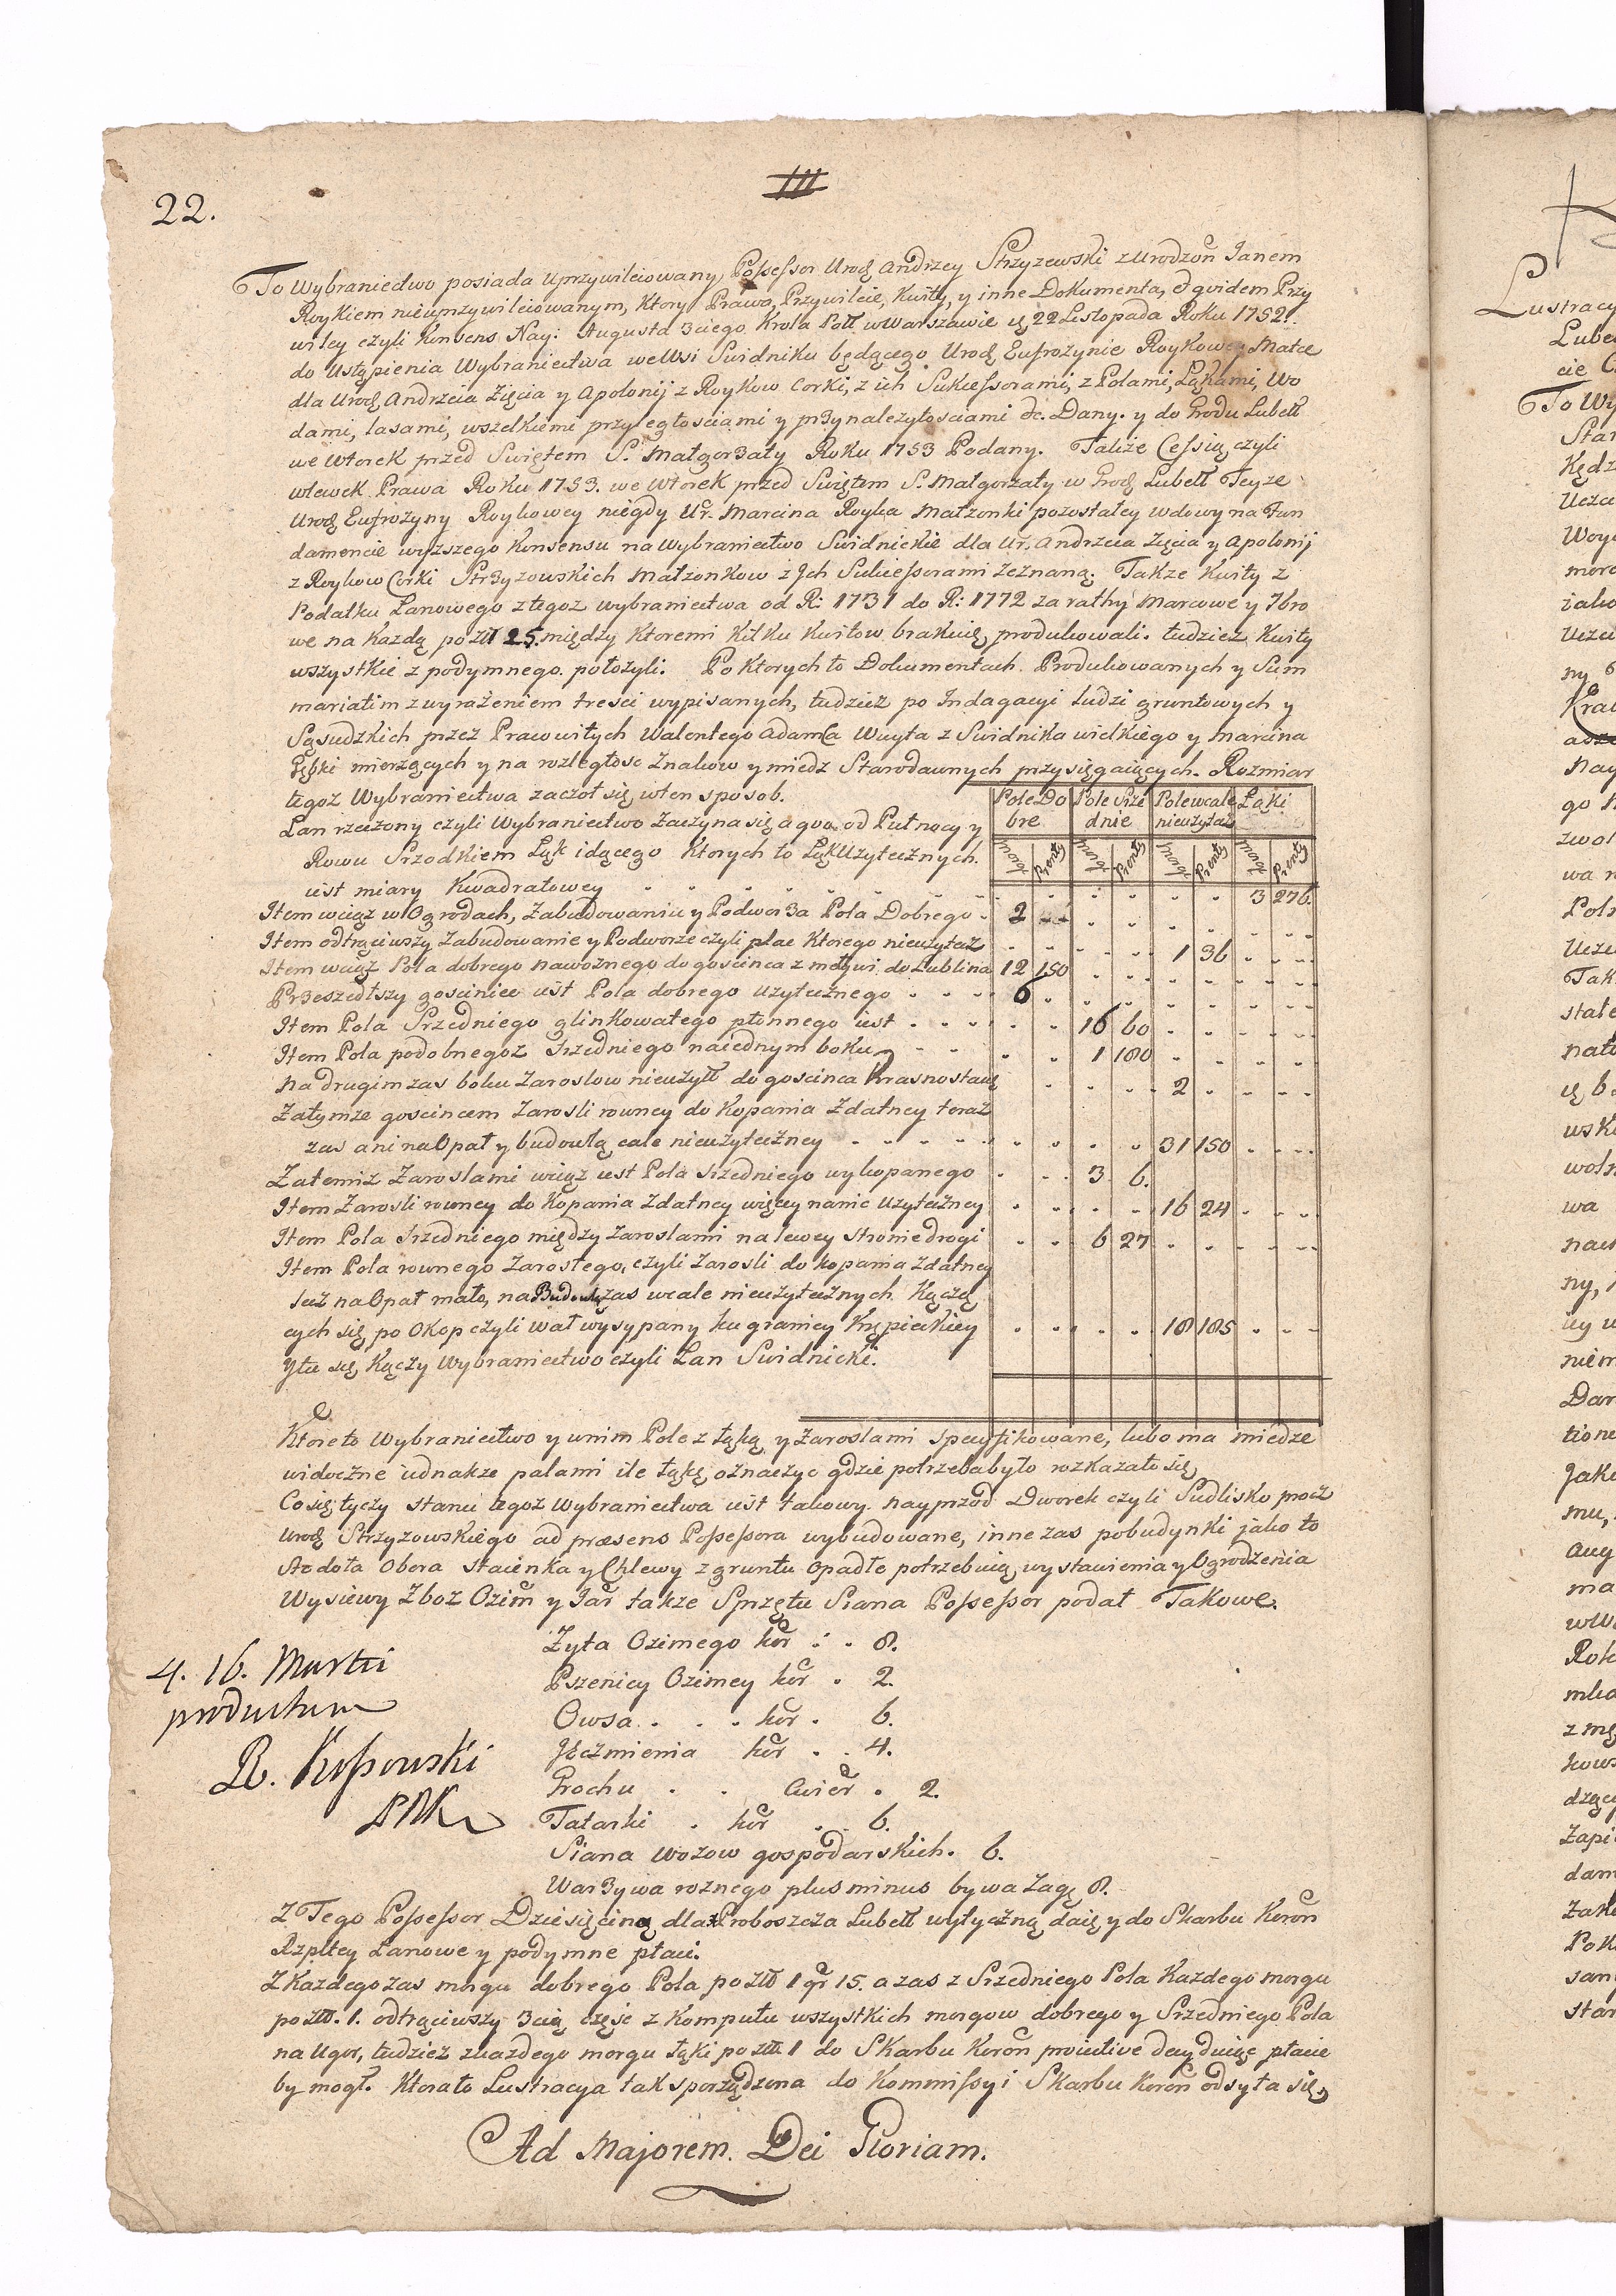 22.
III
To Wybraniectwo posiada uprzywileiowany Possessor Urod Andrzey Strzyzewski z Urodzon Janem
Roykiem nieuprzywileiowanym, Ktory Prawo, Przywileie, Kwity, y inne Dokumenta, et quidem Przy
wiley czyli Konsens Nay: Augusta 3ciego Krola Poll w Warszawie d 22 Listopada Roku 1752.
do Ustąpienia Wybraniectwa we Wsi Swidniku będącego Urod Eufrozynie Roykowey Matce
dla Urod Andrzeia Zięcia y Apolonij z Roykow Corki, z ich Sukcessorami, z Polami, Łąkami, Wo
dami, lasami, wszelkiemi przyległosciami y przynalezytosciami &c. Dany. y do Grodu Lubell
we Wtorek przed Swiętem S. Małgorzaty Roku 1753 Podany. Takze Cessią czyli
wlewek Prawa Roku 1753. we Wtorek przed Swiętem S. Małgorzaty w Grod Lubell Teyze
Urod Eufrozyny Roykowey niegdy Ur. Marcina Royka Małzonki pozostałey wdowy na Fun
damencie wyzszego Konsensu na Wybraniectwo Swidnickie dla Ur. Andrzeia Zięcia y Apolonij
z Roykow Corki Strzyzowskich Małzonkow z Jch Sukcessorami zeznaną. Takze Kwity z
Podatku Łanowego z tegoz wybraniectwa od R: 1731 do R: 1772 za rathy Marcowe y 7bro
we na Kazdą po Zll 25. między Ktoremi Kilku Kwitow brakuie, produkowali. tudziez Kwity
wszystkie z podymnego połozyli. Po Ktorych to Dokumentach Produkowanych y Sum
mariatim z wyrazeniem tresci wypisanych, tudziez po Indagacyi Ludzi gruntowych y
Sąsudzkich przez Prawowitych Walentego Adamca Wuyta z Swidnika wielkiego y Marcina
Gębki mierzących y na rozległosc Znakow y miedz Starodawnych przysięgaiących. Rozmiar
tegoz Wybraniectwa zaczoł się w ten sposob.
Pole Do bre Pole Srze dnie Pole wcale nieuzytez Łąki
Morg Pręnty Morg Pręnty Morg Pręnty Morg Pręnty
Łan rzeczony czyli Wybraniectwo Zaczyna się a quo od Pułnocy y
Rowu Srzodkiem Łąk idącego Ktorych to Łąk Uzytecznych
iest miary Kwadratowey 3 276.
Item wciąz w Ogrodach, Zabudowaniu y Podworza Pola Dobrego 2
Item odtrąciwszy Zabudowanie y Podworze czyli plac Ktorego nieuzytez 1 36
Item wciąz Pola dobrego nawoznego do goscinca z Mełgwi do Lublina 12 150
Przeszedłszy gosciniec iest Pola dobrego uzytecznego 6
Item Pola Srzedniego glinkowatego płonnego iest 16 60
Item Pola podobnegoz Srzedniego na iednym boku 1 180
na drugim zas boku Zaroslow nieuzytt do goscinca Krasnostaw 2
Zatymze goscincem Zarosli rowney do Kopania Zdatney teraz
zas ani na Opał y budowlą cale nieuzyteczney 31 150
Zatemiz Zaroslami wciąz iest Pola Srzedniego wykopanego 3 6.
Item Zarosli rowney do Kopania Zdatney więcey nanic Uzyteczney 16 24
Item Pola Srzedniego między Zaroslami na lewey stronie drogi 6 27
Item Pola rownego Zarosłego, czyli Zarosli do kopania Zdatney
Też na Opał mało, na Budowlą zas wcale nieuzytecznych Kączą
cych się po Okop czyli wał wysypany ku granicy Krępieckiey 18 185
Y tu się Kączy Wybraniectwo czyli Łan Swidnicki.
Ktore to Wybraniectwo y w nim Pole z łąką y Zaroslami specyfikowane, lubo ma miedze
widoczne iednakze palami ile łąkę oznaczyc gdzie potrzeba było rozkazało się,
Co się tyczy stanu tegoz Wybraniectwa iest takowy. nayprzod Dworek czyli Sidlisko przez
Urod Strzyzowskiego ad præsens Possessora wybudowane, inne zas pobudynki jako to
Stodoła Obora staienka y Chlewy z gruntu opadłe potrzebuią wystawienia y Ogrodzenia
Wysiewy Zboz Ozim y Jar takze Sprzętu Siana Possessor podał Takowe.
Zyta Ozimego kor 8.
Pszenicy Ozimey kor 2.
Owsa kor 6.
Jęczmienia kor 4.
Grochu Cwier 2.
Tatarki kor 6.
Siana wozow gospodarskich. 6.
Warzywa roznego plus minus bywa Zag 8.
4. 16. Martii
productum
R. Kossowski
PSK
Z Tego Possessor Dziesięcinę dla Proboszcza Lubell wytyczną daie y do Skarbu Koron
Rzpltey Łanowe y podymne płaci.
Z Kazdego zas morgu dobrego Pola po Zll 1 gr 15. a zas z Srzedniego Pola Kazdego morgu
po Zll. 1. odtrąciwszy 3cią częsc z Komputu wszystkich morgow dobrego y Srzedniego Pola
na Ugor, tudziez z kazdego morgu łąki po Zll. 1 do Skarbu Koron proiective decyduiąc płacic
by mogł. Ktora to Lustracya tak sporządzona do Kommissyi Skarbu Koron odsyła się,
Ad Majorem Dei Gloriam.